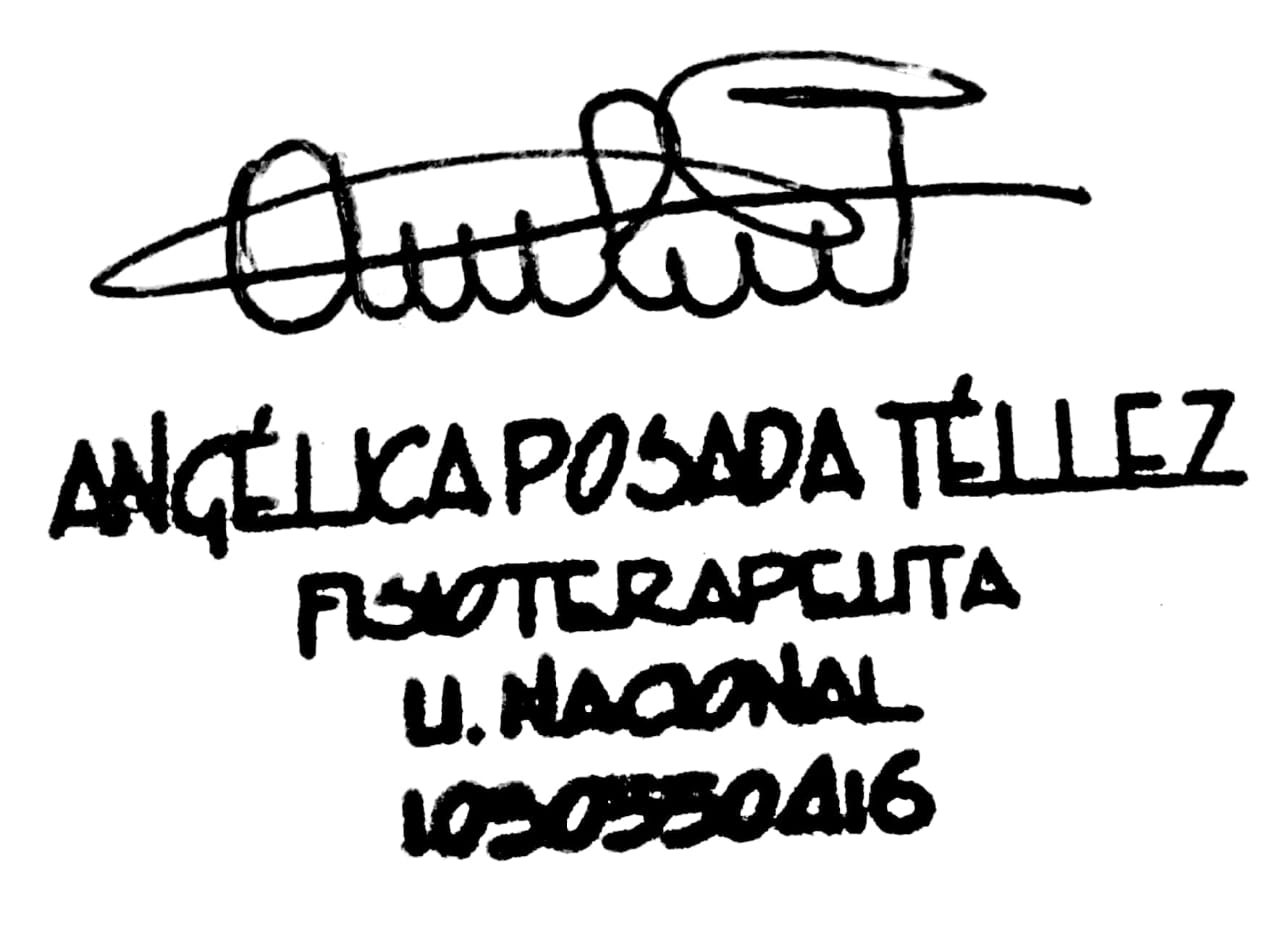 ANGÉLICA POSADA TÉLLEZ
FISIOTERAPEUTA
U. NACIONAL
1030550416